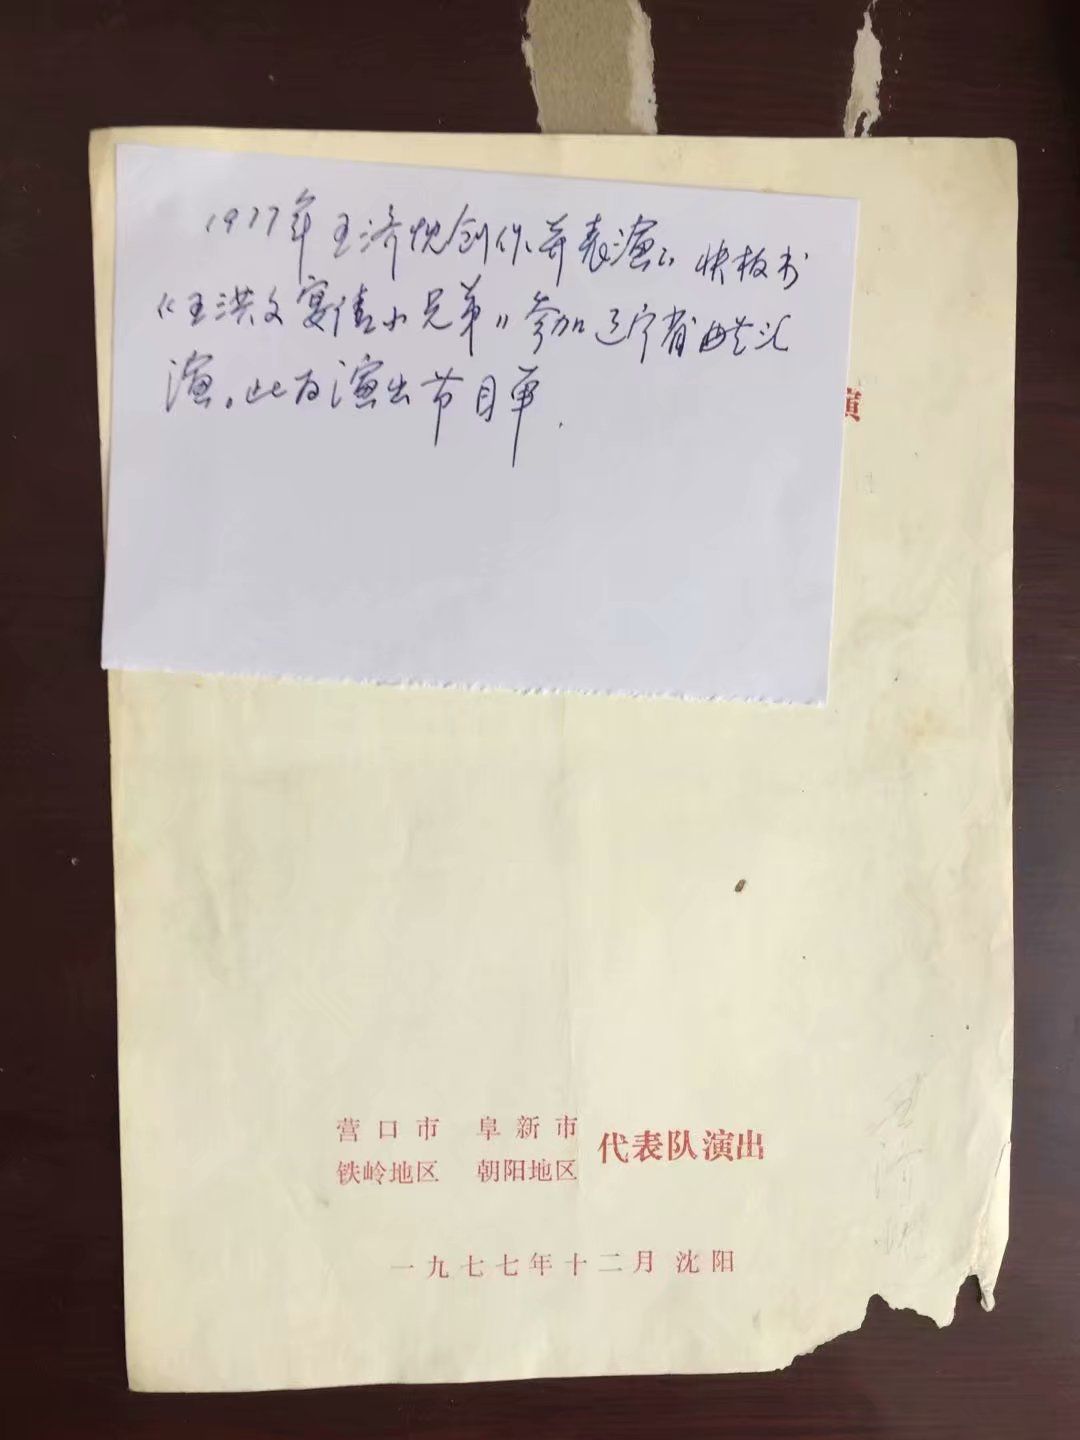 1977年王济忱创作并表演了快板书
《王洪文宴请小兄弟》参加辽宁省曲艺汇
演。此为演出节目单.
演
营口市 阜新市
铁岭地区 朝阳地区
代表队演出
一九七七年十二月 沈阳
王济忱